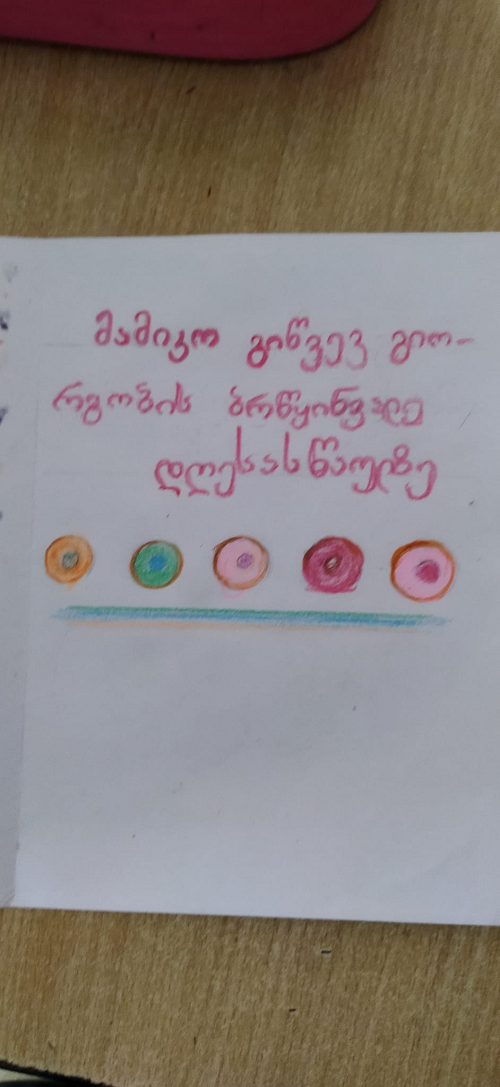 მამიკო გიწვევ გიო-
რგობის ბრწყინვალე
დღესასწაულზე